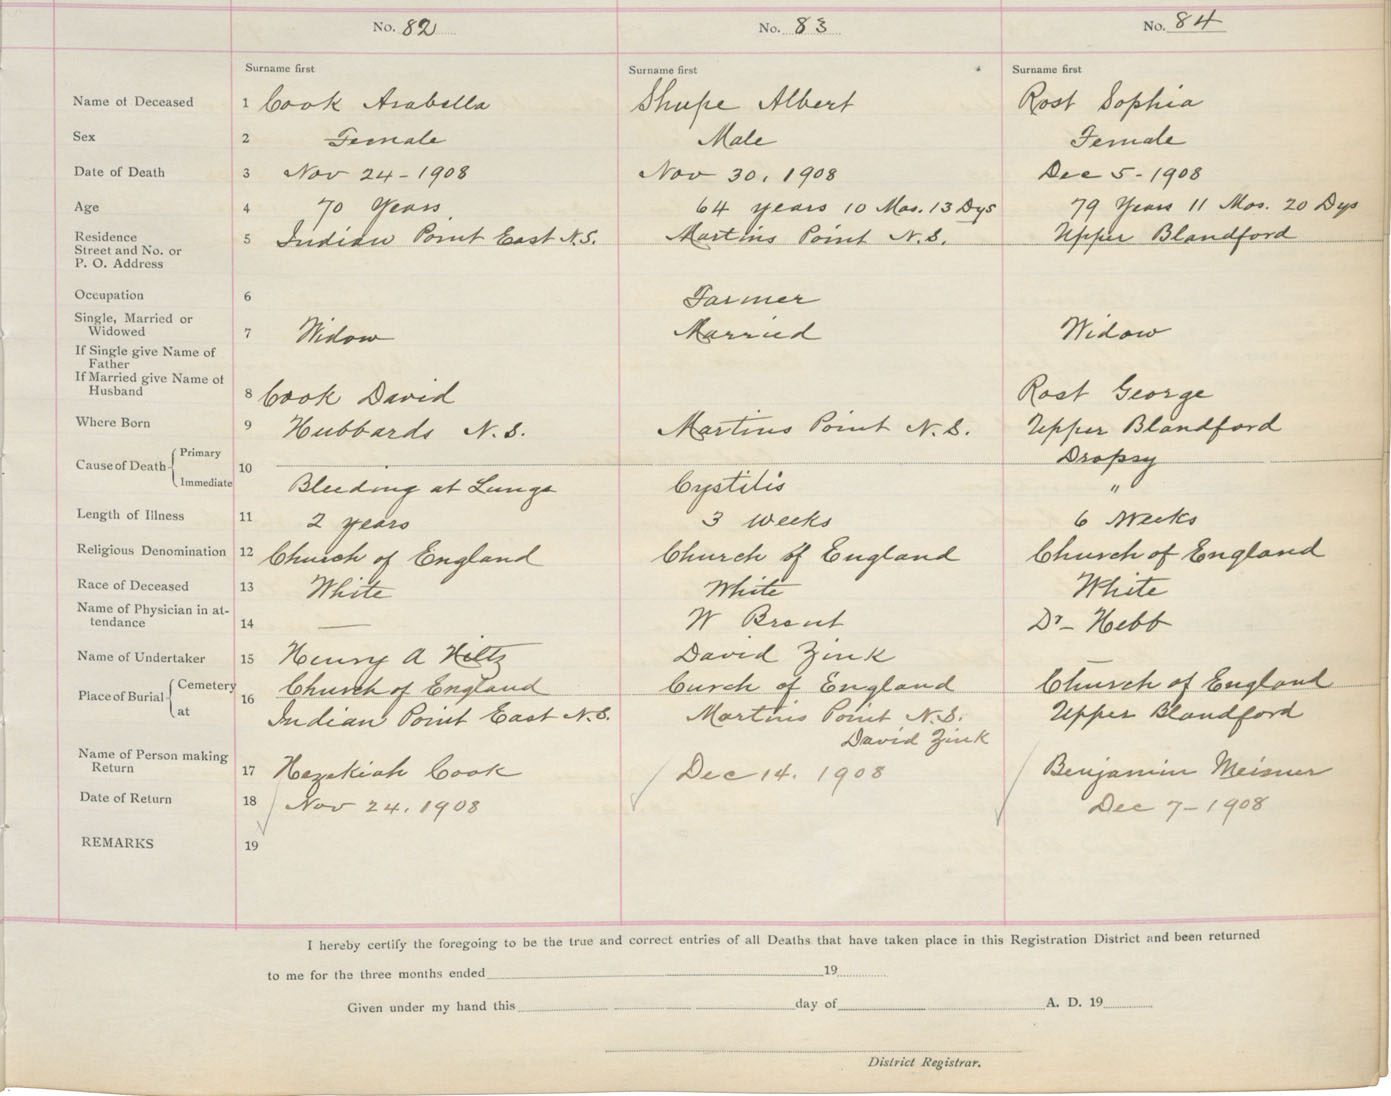 No. 82 No. 83 No. 84
Surname first Surname first Surname first
Name of Deceased 1 Cook Arabella Shupe Albert Rost Sophia
Sex 2 Female Male Female
Date of Death 3 Nov 24-1908 Nov 30, 1908 Dec 5-1908
Age 4 70 Years 64 years 10 Mos. 13 Dys 79 Years 11 Mos. 20 Dys
Residence 5 Indian Point East N.S. Martins Point N.S. Upper Blandford
Street and No. or
P. O. Address
Occupation 6 Farmer
Single, Married or
Widowed 7 Widow Married Widow
If Single give Name of
Father
If Married give Name of
Husband 8 Cook David Rost George
Where Born 9 Hubbards N.S. Martins Point N.S. Upper Blandford
Cause of Death Primary 10 Dropsy
Immediate Bleeding at Lungs Cystilis "
Length of Illness 11 2 years 3 weeks 6 Weeks
Religious Denomination 12 Church of England Church of England Church of England
Race of Deceased 13 White White White
Name of Physician in at-
tendance 14 — W Brent Dr- Hebb
Name of Undertaker 15 Henry A Hiltz David Zink —
Place of Burial Cemetery 16 Church of England Curch of England Church of England
at Indian Point East N.S. Martins Point N.S. Upper Blandford
David Zink
Name of Person making
Return 17 Hezekiah Cook Dec 14. 1908 Benjamin Meisner
Date of Return 18 Nov 24. 1908 Dec 7-1908
REMARKS 19
I hereby certify the foregoing to be the true and correct entries of all Deaths that have taken place in this Registration District and been returned
to me for the three months ended 19
Given under my hand this day of A. D. 19
District Registrar.